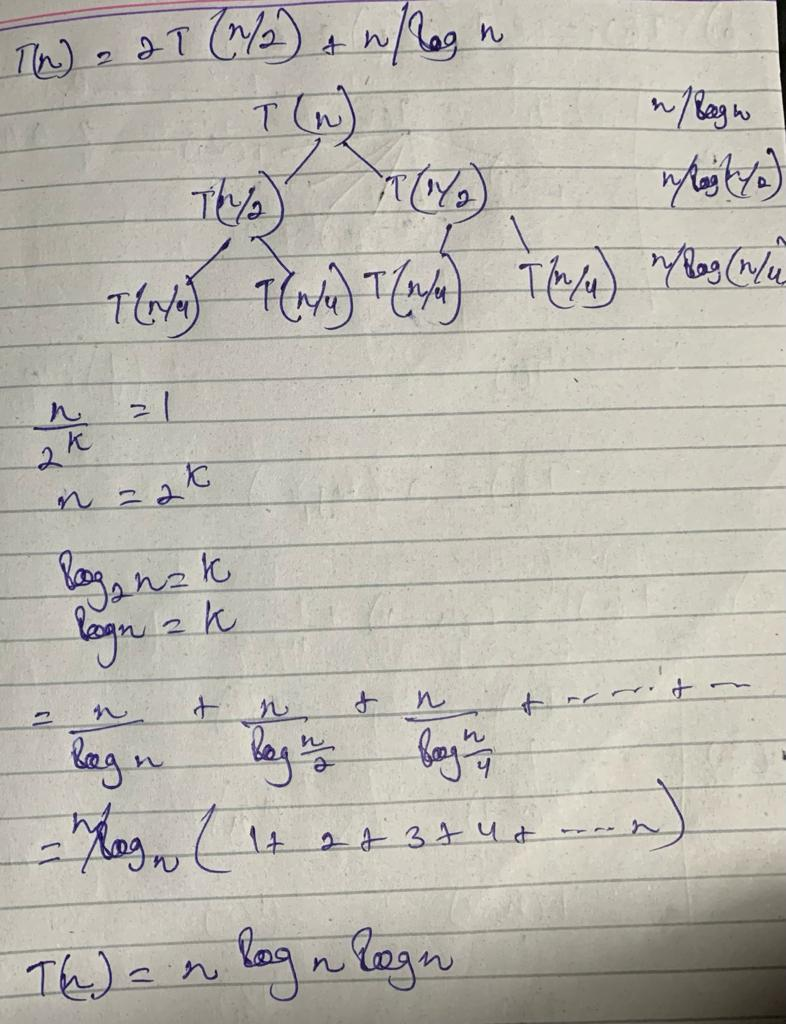 T(n) = 2T(n/2) + n/log n
T(n) n/log n
T(n/2) T(n/2) n/log(n/2)
T(n/4) T(n/4) T(n/4) T(n/4) n/log(n/4
n/2^k = 1
n = 2^k
log₂n = k
logn = k
= n/log n + n/log n/2 + n/log n/4 + ...... + -
= n/log n (1+ 2+ 3+4+ ..... n)
T(n) = n log n logn